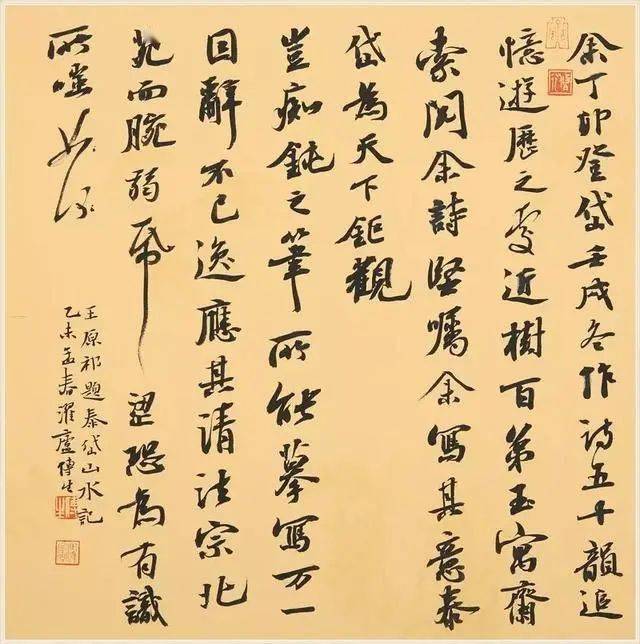 余丁卯登岱壬戌冬作诗五十韻追
憶遊歷之處近樹百弟玉寓齋
索閱余詩堅囑余寫其意泰
岱為天下鉅觀
豈痴鈍之筆所能摹寫万一
因辭不已遂應其請法宗北
苑而腕弱帋澀恐為有識
所嗤如〻何〻
王原祁題泰岱山水記
乙未孟春濯廬傳生